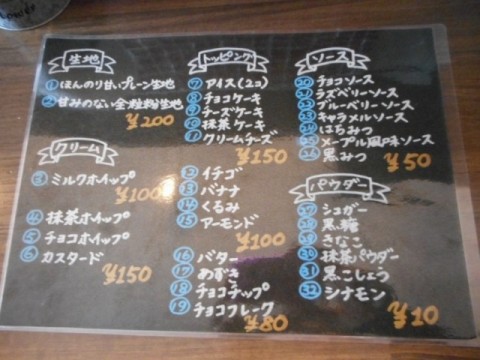 生地
① ほんのり甘いプレーン生地
② 甘みのない全粒粉生地
¥200
クリーム
③ ミルクホイップ
¥100
④ 抹茶ホイップ
⑤ チョコホイップ
⑥ カスタード
¥150
トッピング
⑦ アイス(2コ)
⑧ チョコケーキ
⑨ チーズケーキ
⑩ 抹茶ケーキ
⑪ クリームチーズ
¥150
⑫ イチゴ
⑬ バナナ
⑭ くるみ
⑮ アーモンド
¥100
⑯ バター
⑰ あずき
⑱ チョコチップ
⑲ チョコフレーク
¥80
ソース
⑳ チョコソース
㉑ ラズベリーソース
㉒ ブルーベリーソース
㉓ キャラメルソース
㉔ はちみつ
㉕ メープル風味ソース
㉖ 黒みつ
¥50
パウダー
㉗ シュガー
㉘ 黒糖
㉙ きなこ
㉚ 抹茶パウダー
㉛ 黒こしょう
㉜ シナモン
¥10